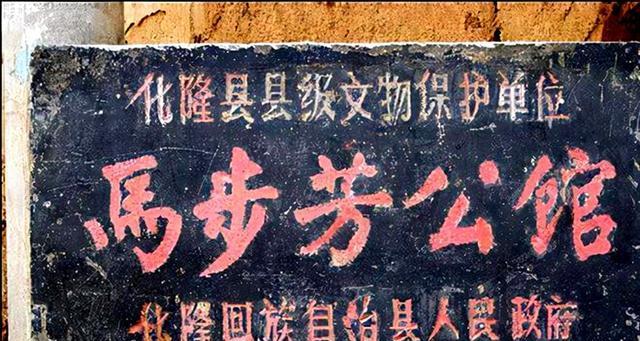 化隆县县级文物保护单位
馬步芳公馆
化隆回族自治县人民政府